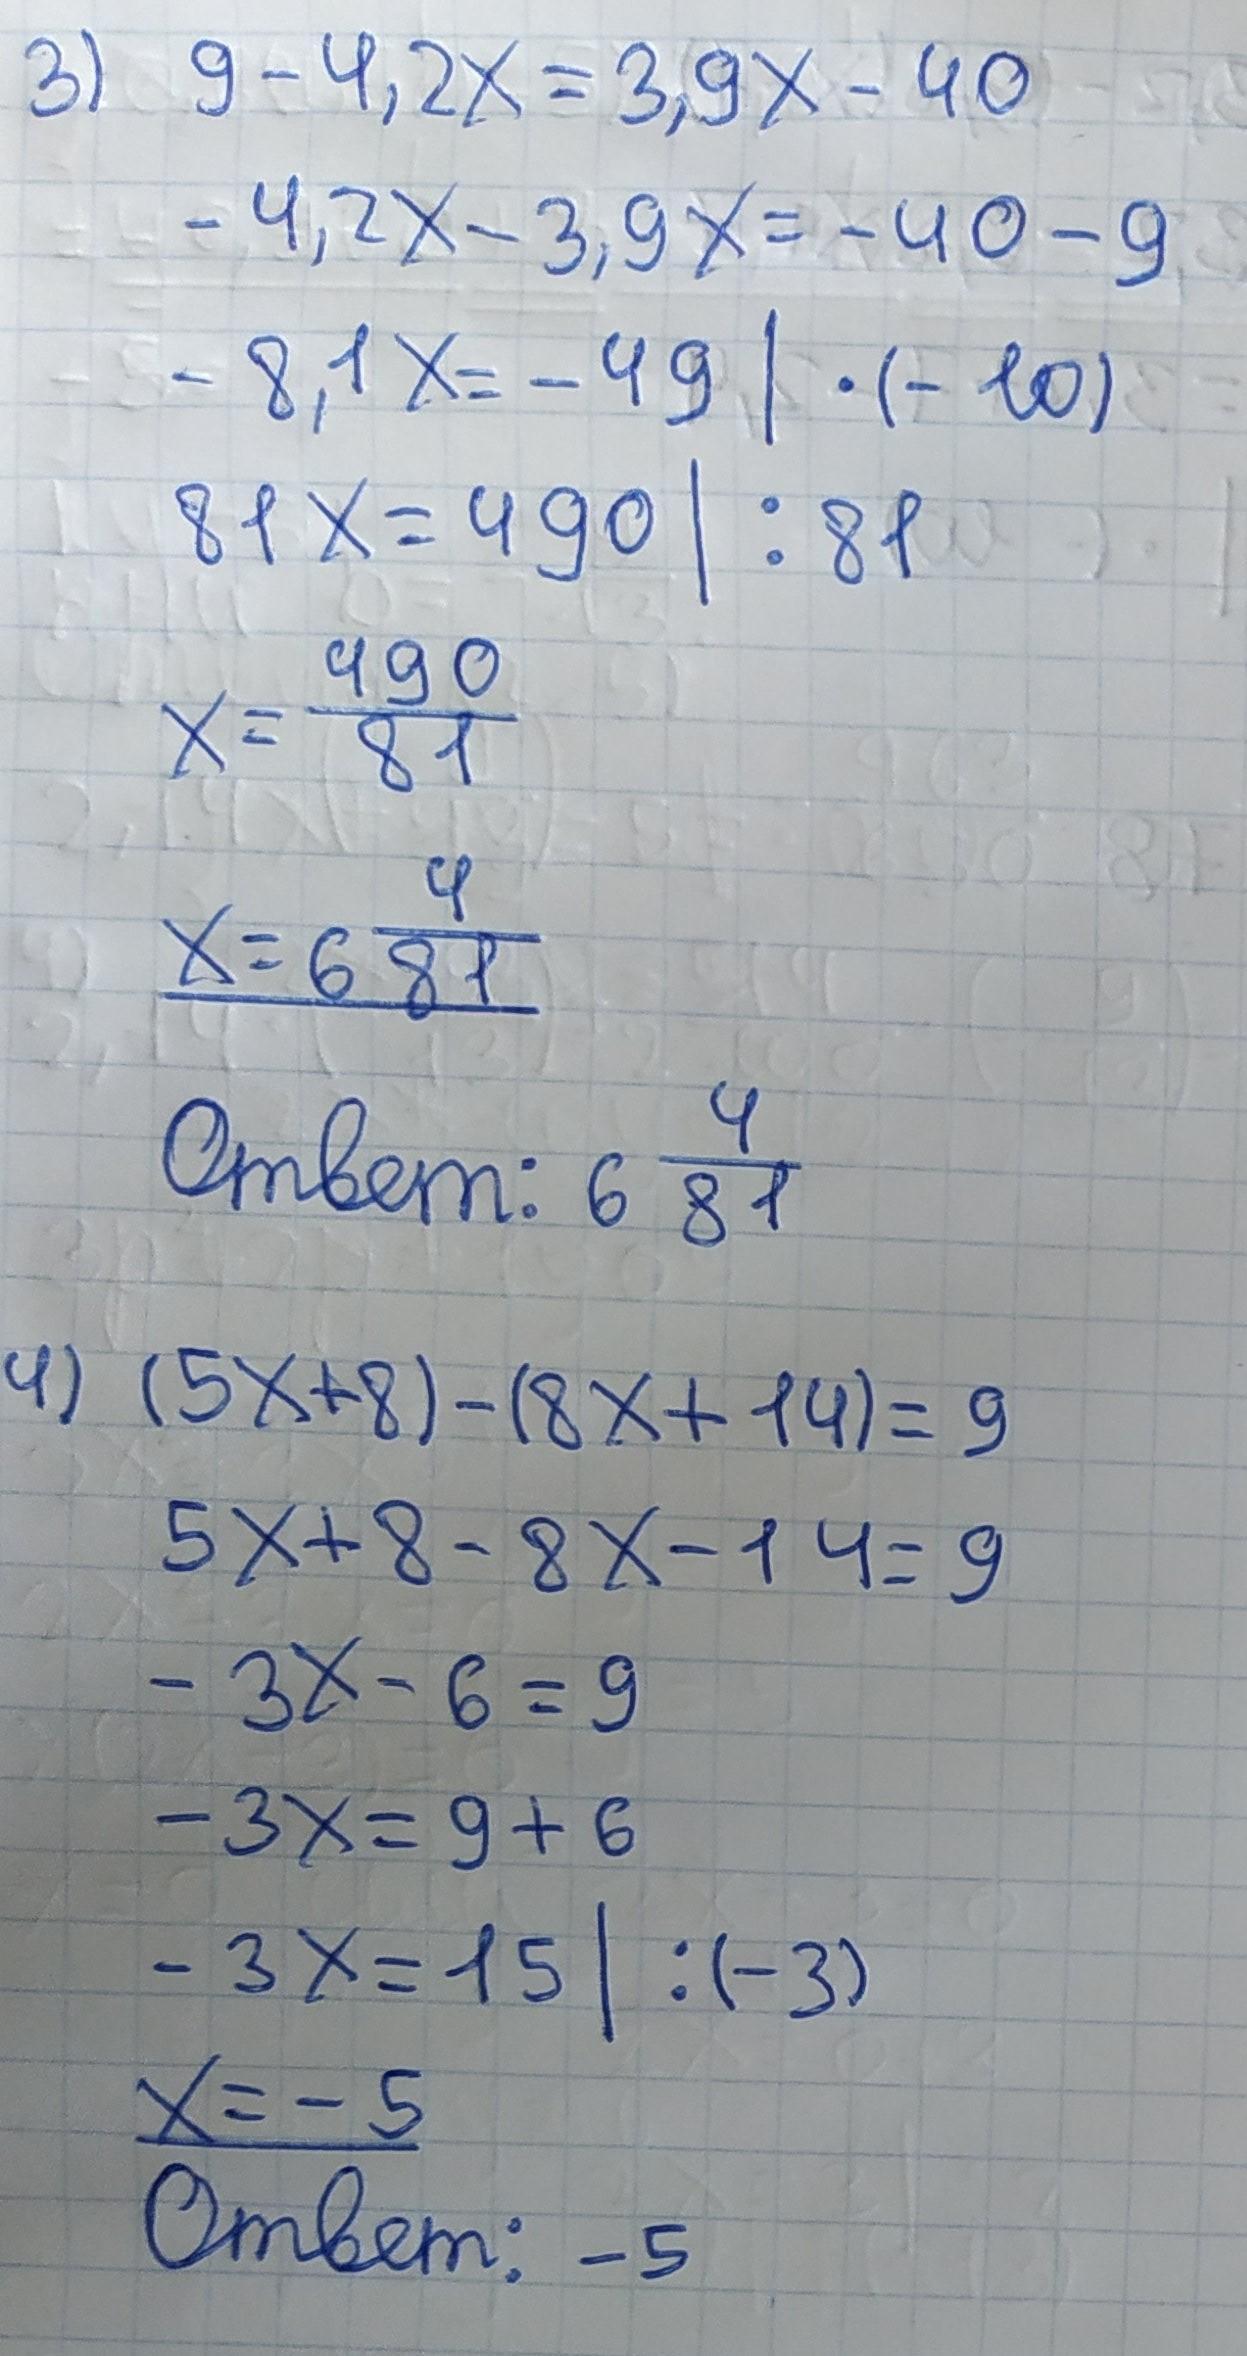 3) 9-4,2x=3,9x-40
-4,2x-3,9x=-40-9
-8,1x=-49 | ·(-10)
81x=490 | :81
x=490/81
x=6 4/81
Ответ: 6 4/81
4) (5x+8)-(8x+14)=9
5x+8-8x-14=9
-3x-6=9
-3x=9+6
-3x=15 | :(-3)
x=-5
Ответ: -5